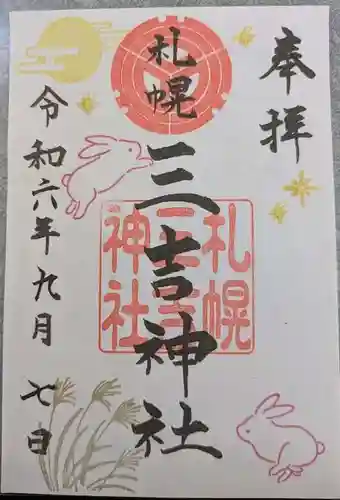 奉拝
札幌
三吉神社
札幌
三吉
神社
令和六年九月七日